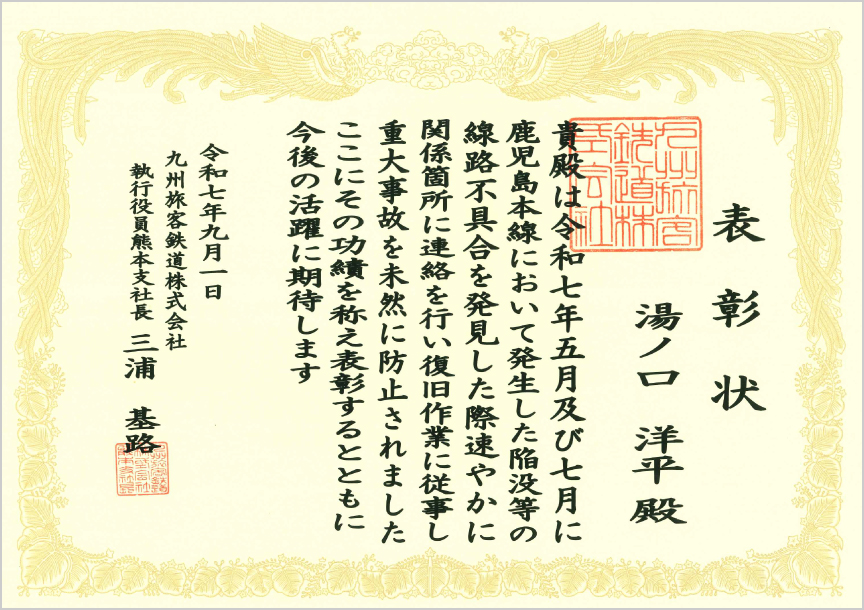 表彰状
湯ノ口 洋平 殿
貴殿は令和七年五月及び七月に
鹿児島本線において発生した陥没等の
線路不具合を発見した際速やかに
関係箇所に連絡を行い復旧作業に従事し
重大事故を未然に防止されました
ここにその功績を称え表彰するとともに
今後の活躍に期待します
令和七年九月一日
九州旅客鉄道株式会社
執行役員熊本支社長 三浦 基路